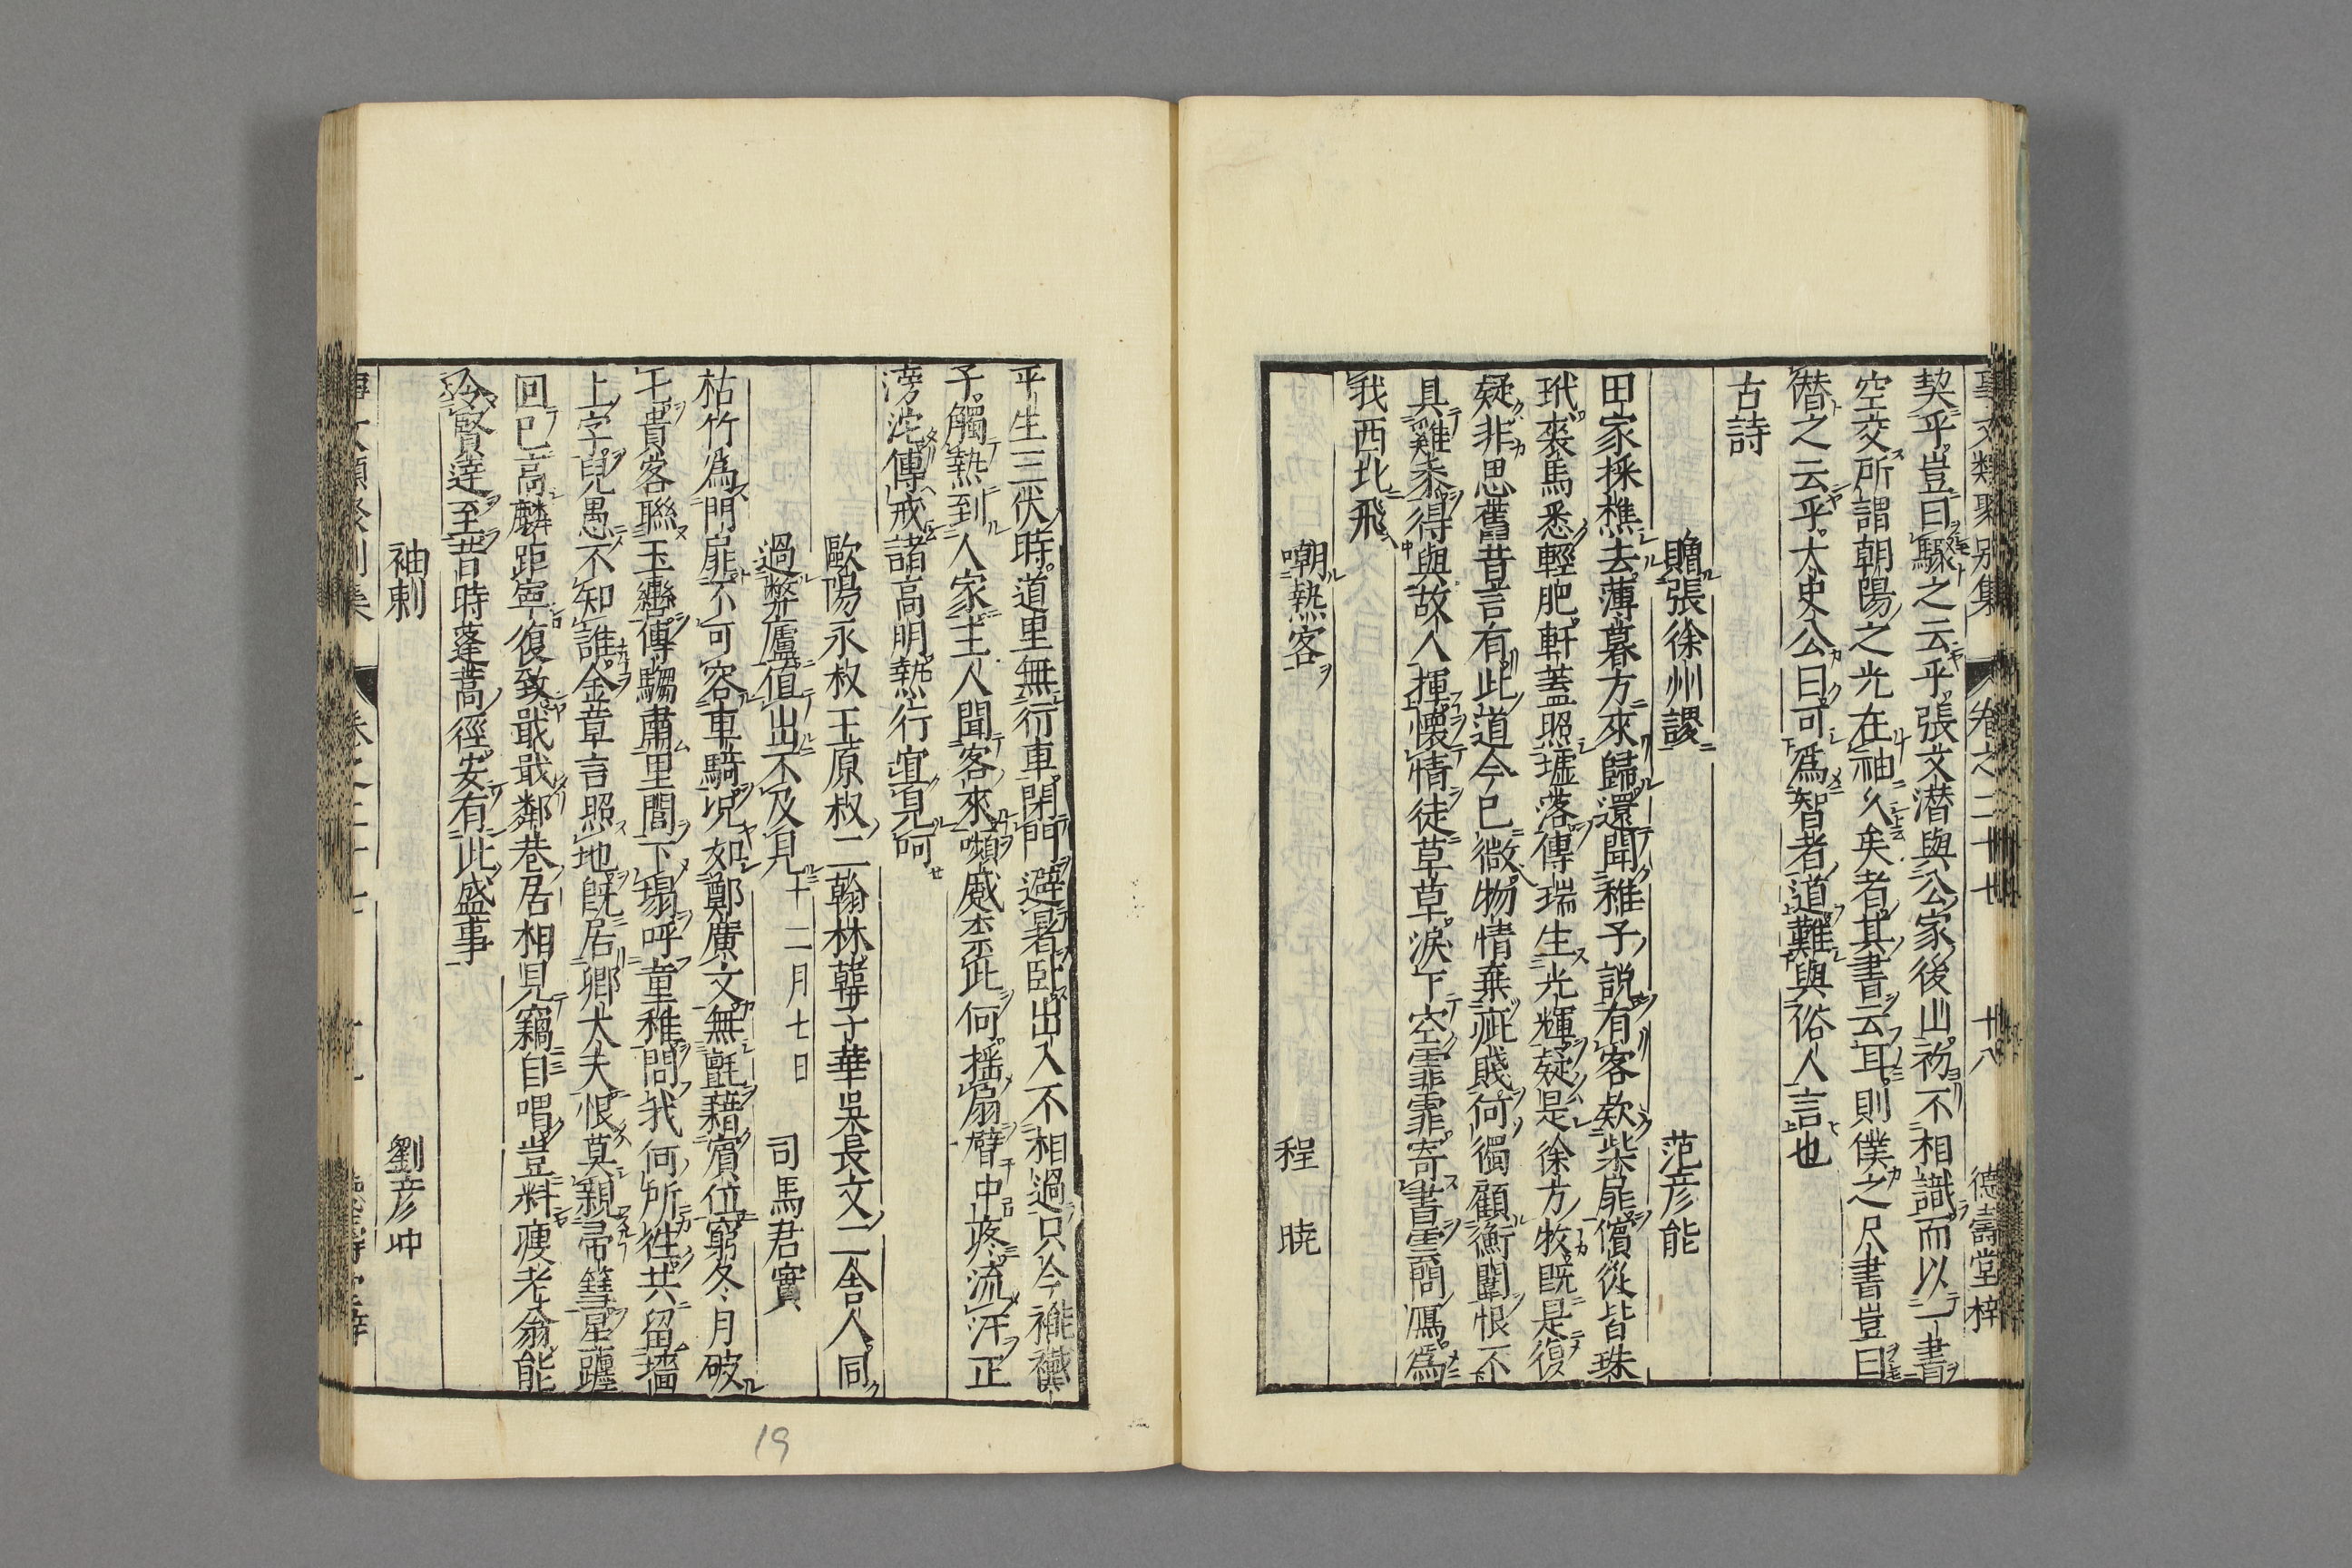 事文類聚別集 卷之二十七 十八 德壽堂梓
契乎豈曰驟之云乎張文潜與公家後山初不相識而以一書
空交所謂朝陽之光在袖久矣者其書云耳則僕之尺書豈曰
僣之云乎太史公曰可爲智者道難與俗人言也
古詩
贈張徐州謖 范彦能
田家採樵去薄暮方來歸還聞稚子説有客欵柴扉儐從皆珠
玳裘馬悉輕肥軒蓋照墟落傳瑞生光輝疑是徐方牧既是復
疑非思舊昔言有此道今已微物情棄疵賤何獨顧衡闈恨不
具雞黍得與故人揮懷情徒草草淚下空霏霏寄書雲間鴈爲
我西北飛
嘲熱客 程曉
平生三伏時道里無行車閉門避暑臥出入不相過只今褦襶
子觸熱到人家主人聞客來嚬蹙柰此何揺扇臂中疼流汗正
滂沱傳戒諸高明熱行宜見呵
歐陽永叔王原叔二翰林韓子華吳長文二舍人同
過弊廬值出不及見十二月七日 司馬君實
枯竹爲門扉不可容車騎况如鄭廣文無氈藉賓位窮冬月破
七貴客聯玉轡傳騶肅里閭下榻呼童稚問我何所徃共留墻
上字兒愚不知誰金章言照地旣居卿大夫恨莫親帚篲星躔
回已高麟距寧復致戢戢鄰巷居相見竊自喟豈料痩老翁能
令賢達至昔時蓬蒿徑安有此盛事
袖刺 劉彦冲
19